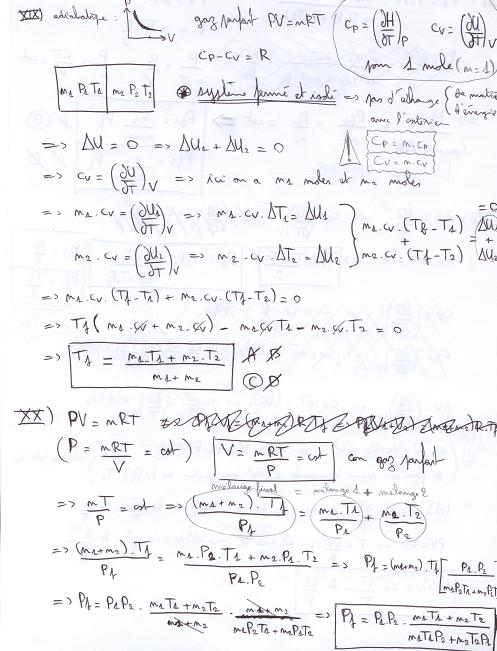 XIX) adiabatique : P V gaz parfait PV = nRT Cp = (∂H/∂T)P Cv = (∂U/∂T)V
Cp - Cv = R pour 1 mole (n = 1)
n1 P1 T1 | n2 P2 T2 système fermé et isolé => pas d'échange { de matière d'énergie
avec l'extérieur
=> ΔU = 0 => ΔU1 + ΔU2 = 0 Cp = n.cp
Cv = n.cv
=> cv = (∂U/∂T)V => ici on a n1 moles et n2 moles
=> n1.cv = (∂U1/∂T)V => n1.cv.ΔT1 = ΔU1 } n1.cv.(Tf - T1) = 0 ΔU1
+ = +
n2.cv = (∂U2/∂T)V => n2.cv.ΔT2 = ΔU2 } n2.cv.(Tf - T2) ΔU2
=> n1.cv.(Tf - T1) + n2.cv.(Tf - T2) = 0
=> Tf (n1.cv + n2.cv) - n1.cv.T1 - n2.cv.T2 = 0
=> Tf = (n1.T1 + n2.T2)/(n1 + n2) A B
C D
XX) PV = nRT
(P = nRT/V = cst) V = nRT/P = cst con gaz parfait
mélange final = mélange 1 + mélange 2
=> nT/P = cst => (n1+n2).Tf/Pf = n1.T1/P1 + n2.T2/P2
=> (n1+n2).Tf/Pf = (n1.P2.T1 + n2.P1.T2)/(P1.P2) => Pf = (n1+n2).Tf [P1.P2/(n1P2T1+n2P1T2)]
=> Pf = P1P2 . (n1T1+n2T2)/(n1+n2) . (n1+n2)/(n1P2T1+n2P1T2) => Pf = P1.P2 . (n1T1+n2T2)/(n1T1P2+n2T2P1)